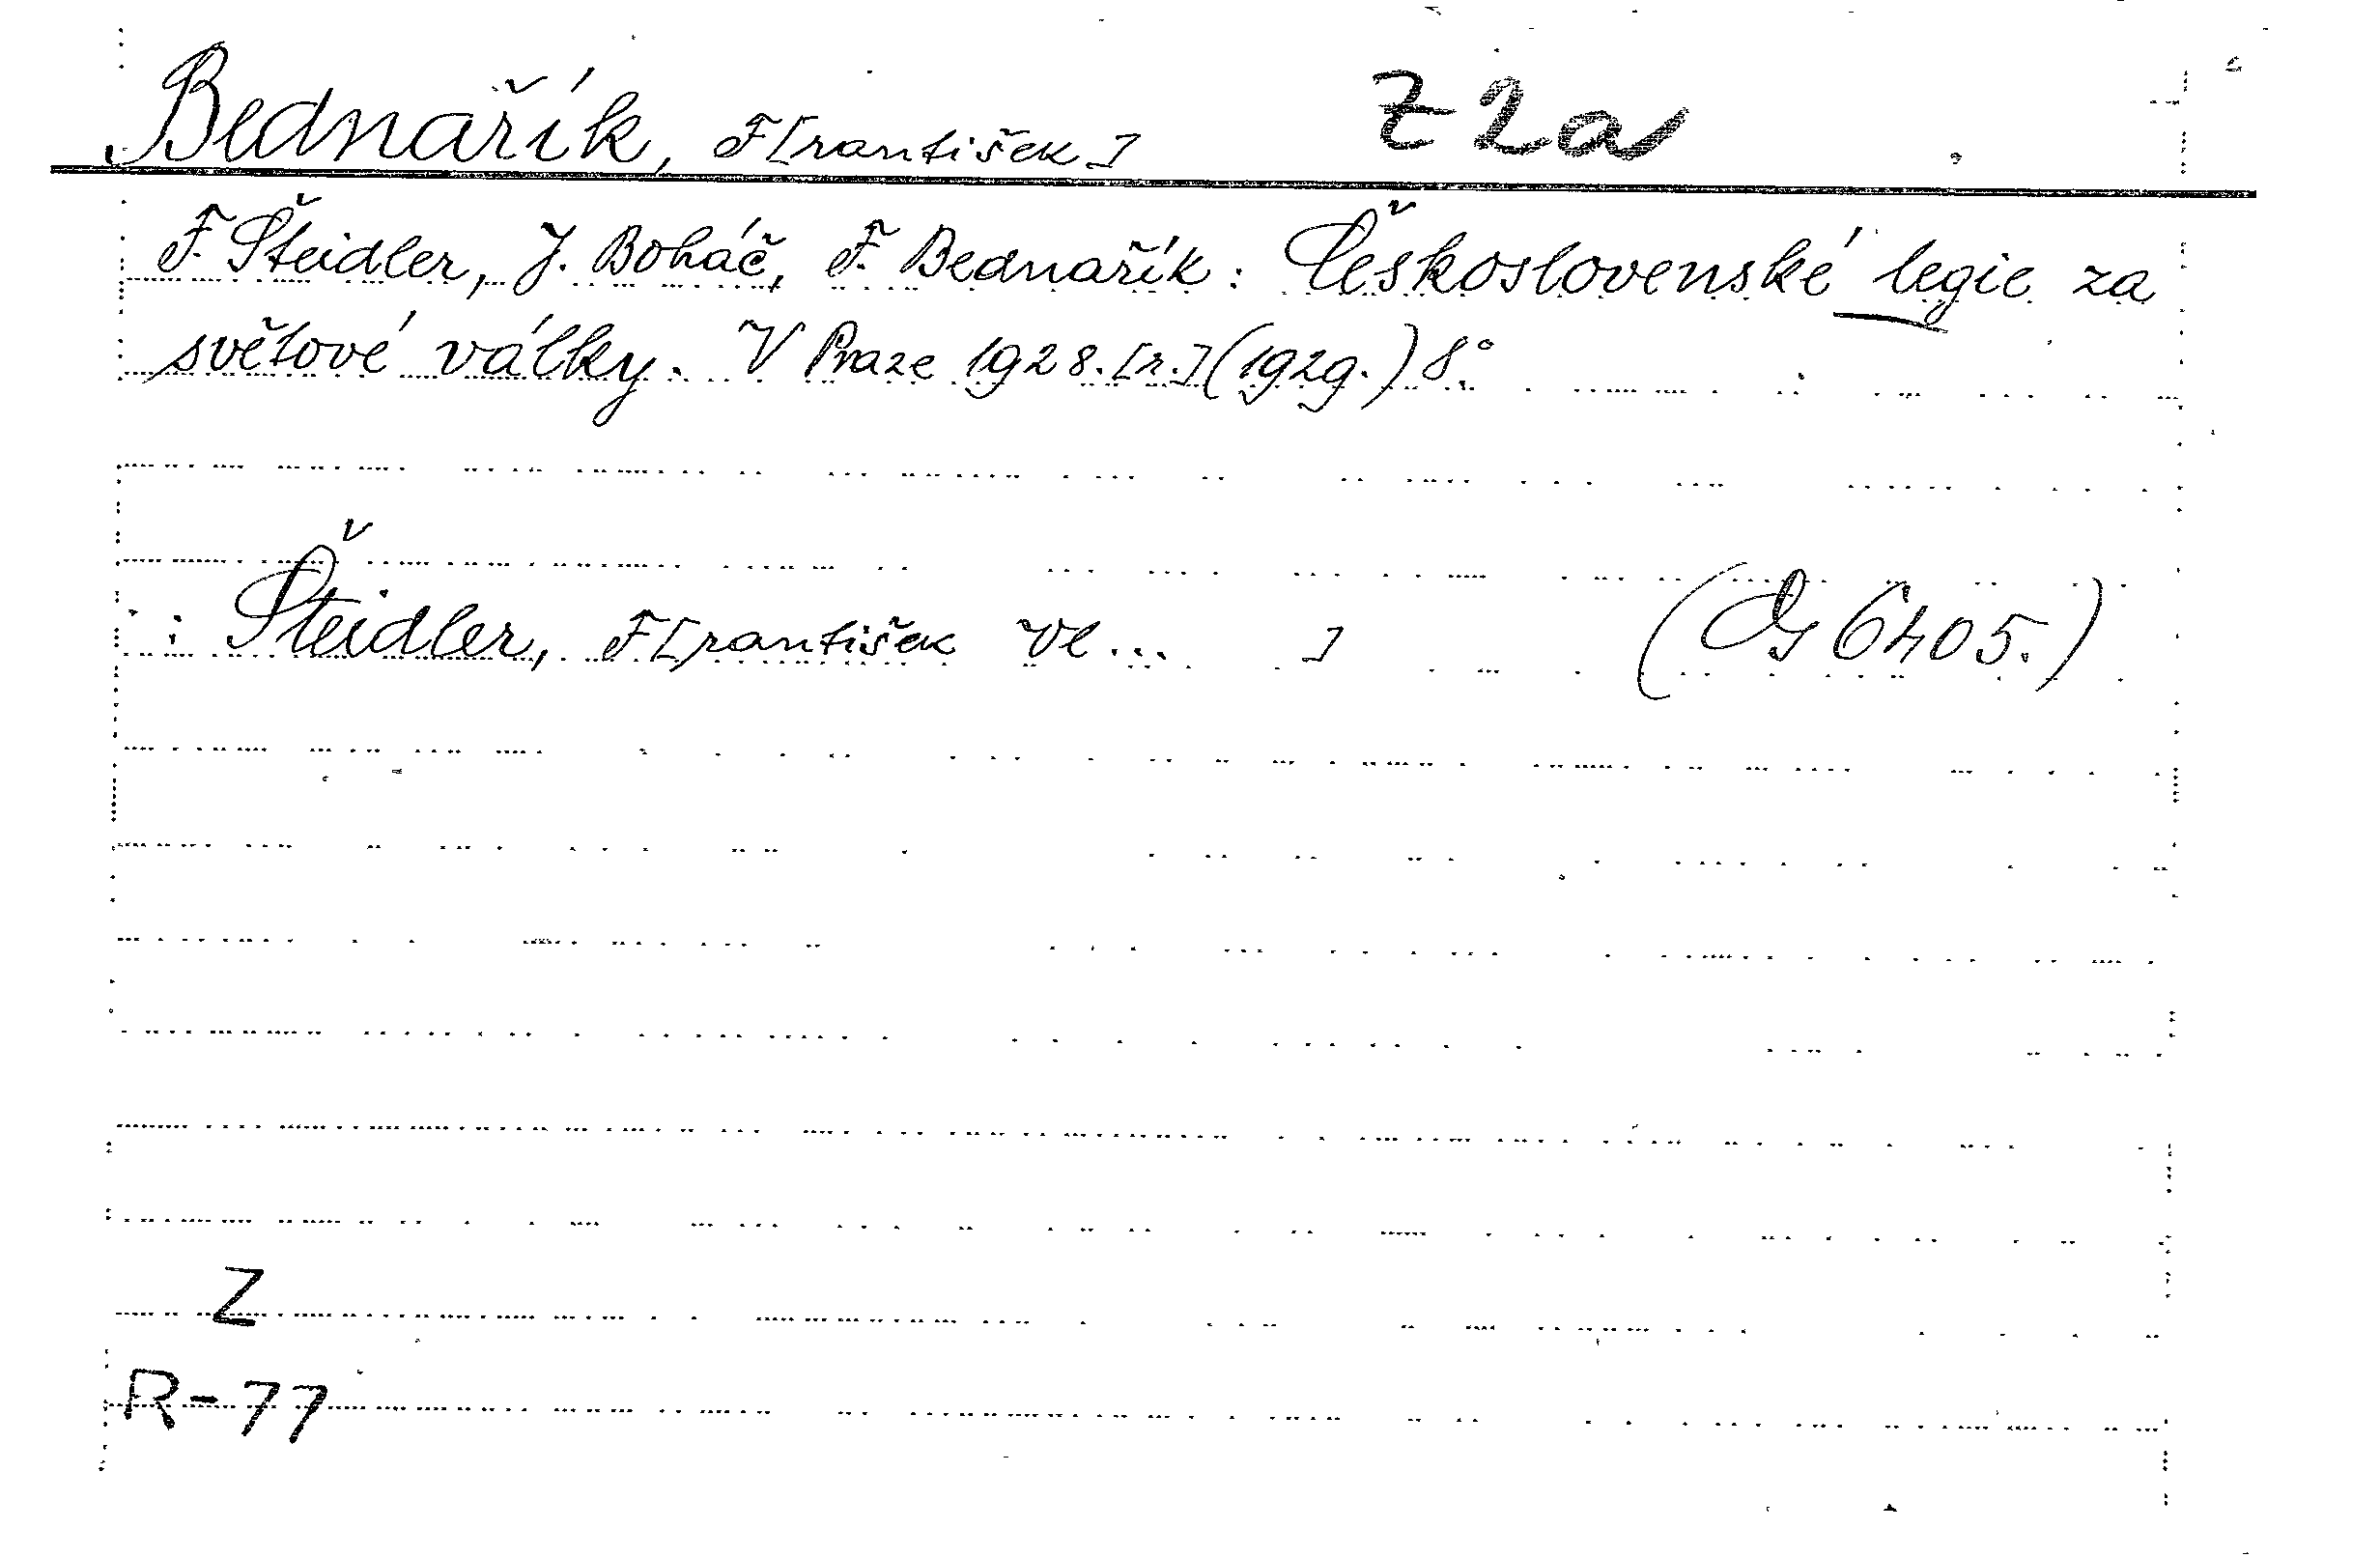 Bednařík, F[rantišek] Z 2a
F. Šteidler, J. Boháč, F. Bednařík: Československé legie za
světové války. V Praze 1928.[r.](1929.) 8°.
: Šteidler, F[rantišek Vl... ] (Og 6405.)
Z
R-77